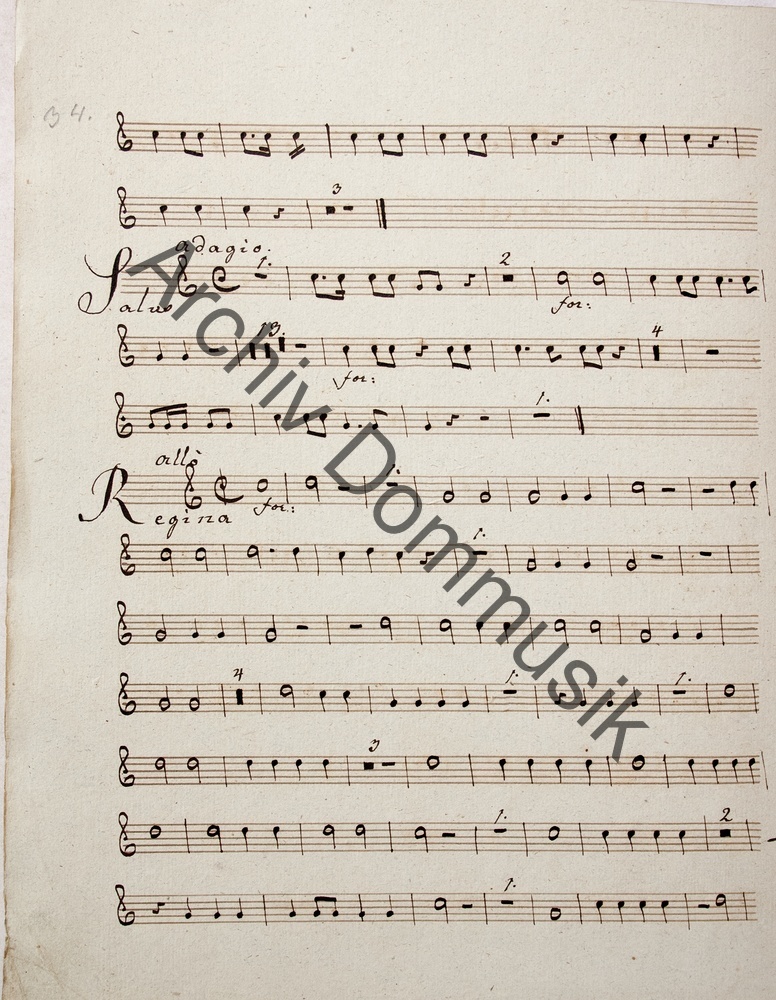 34.
3
adagio.
1. 2
Salve for:
13. 4
for:
1.
allò
Regina for:
1.
4 1. 1.
3
1. 2
1.
Archiv Dommusik